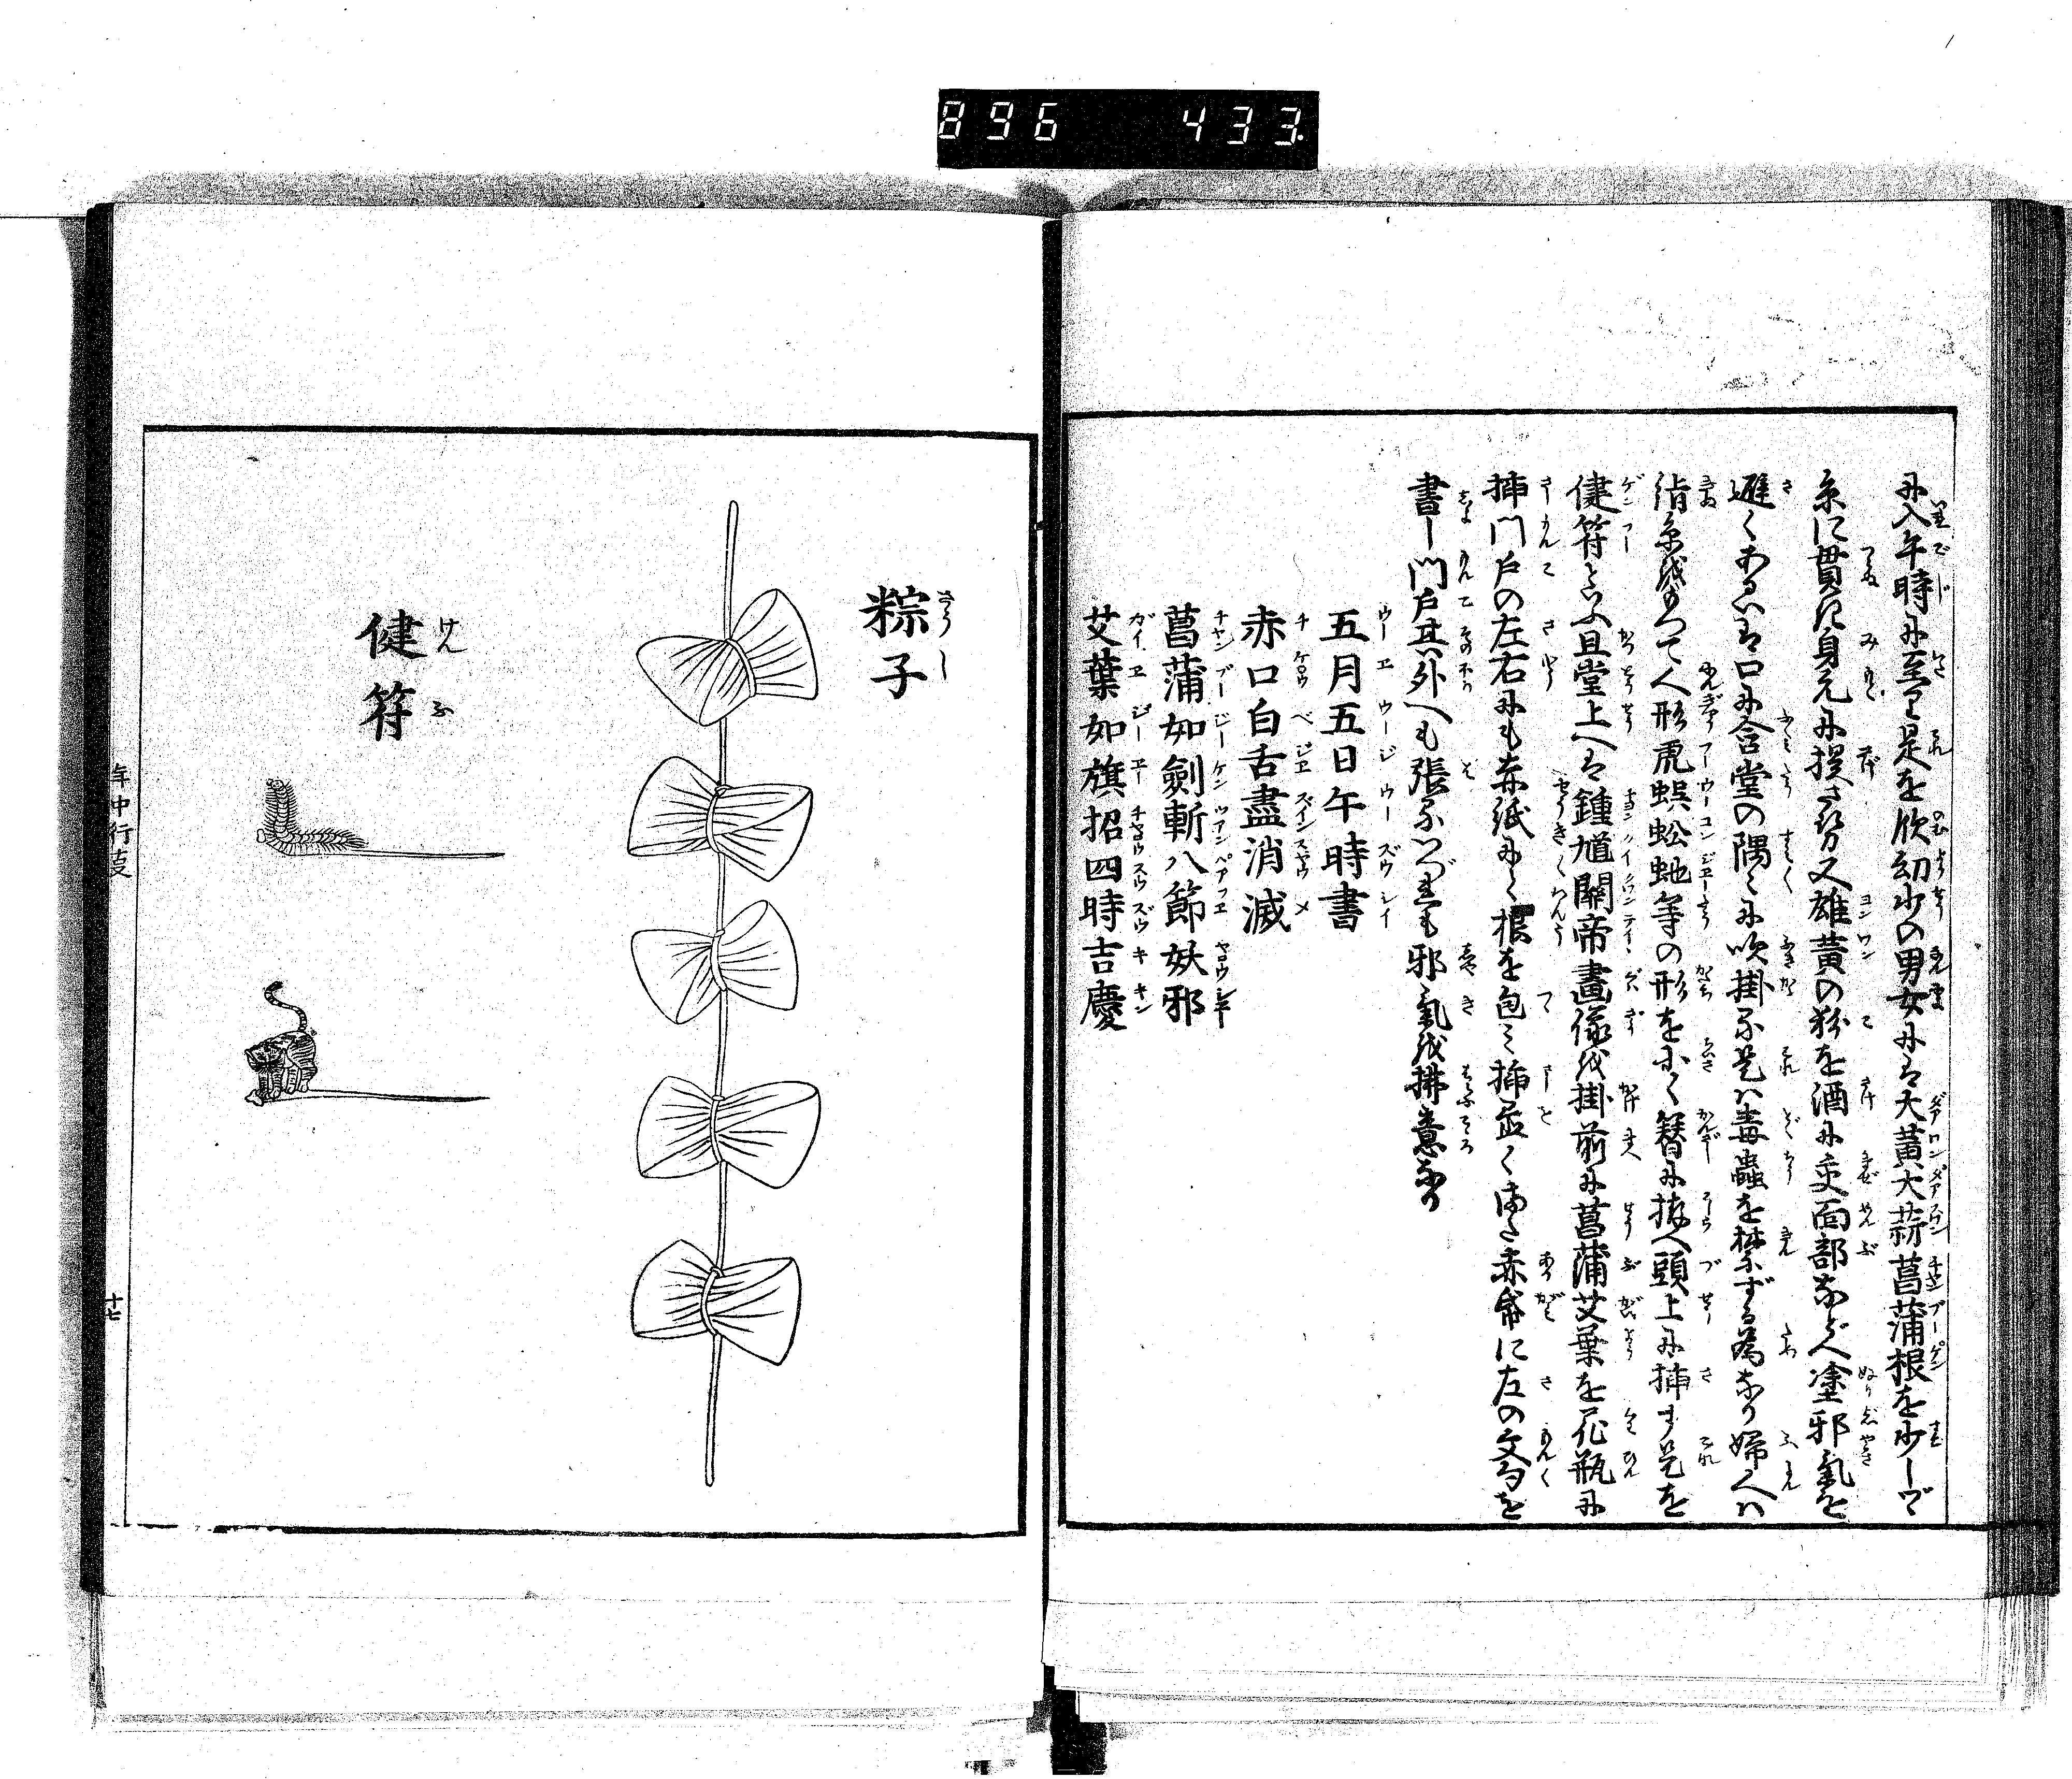 896 433
に入午時に至り是を飲幼少の男女には大黄大蒜菖蒲根を少しづゝ
糸に貫き身元に提させ又雄黄の粉を酒に交面部などへ塗邪氣を
避くあるいは口に含堂の隅〻に吹掛る是ハ毒蟲を禁ずる為なり婦人ハ
絹糸をもつて人形虎蜈蚣虵等の形を小く簪に拵へ頭上に挿す是を
健符といふ且堂上へは鍾馗關帝畫像を掛前に菖蒲艾葉を花瓶に
挿門戸の左右にも赤紙にて根を包ミ挿置くまた赤紙に左の文句を
書し門戸其外へも張るいづれも邪氣を拂意なり
五月五日午時書
赤口白舌盡消滅
菖蒲如劍斬八節妖邪
艾葉如旗招四時吉慶
粽子
健符
年中行事
十七